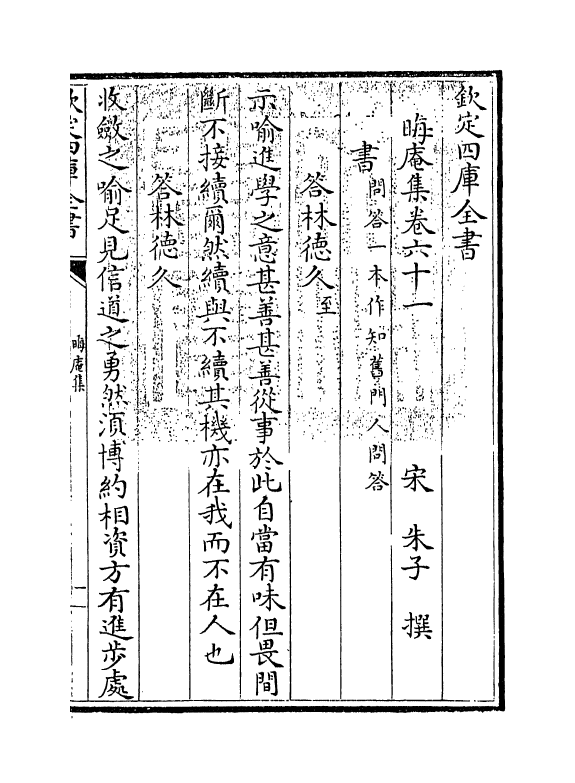 欽定四庫全書
晦庵集卷六十一
宋 朱子 撰
書問答一本作知舊門人問答
答林德久至
示喻進學之意甚善甚善從事於此自當有味但畏間
斷不接續爾然續與不續其機亦在我而不在人也
答林德久
收斂之喻足見信道之勇然須博約相資方有進步處
欽定四庫全書
晦庵集
一